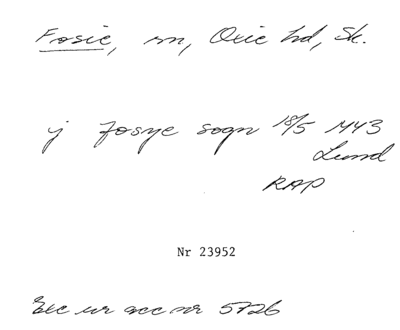 Fosie, sn, Oxie hd, Sk.
j fosye sogn 18/5 1443
Lund
RAP
Nr 23952
Exc ur acc nr 5726